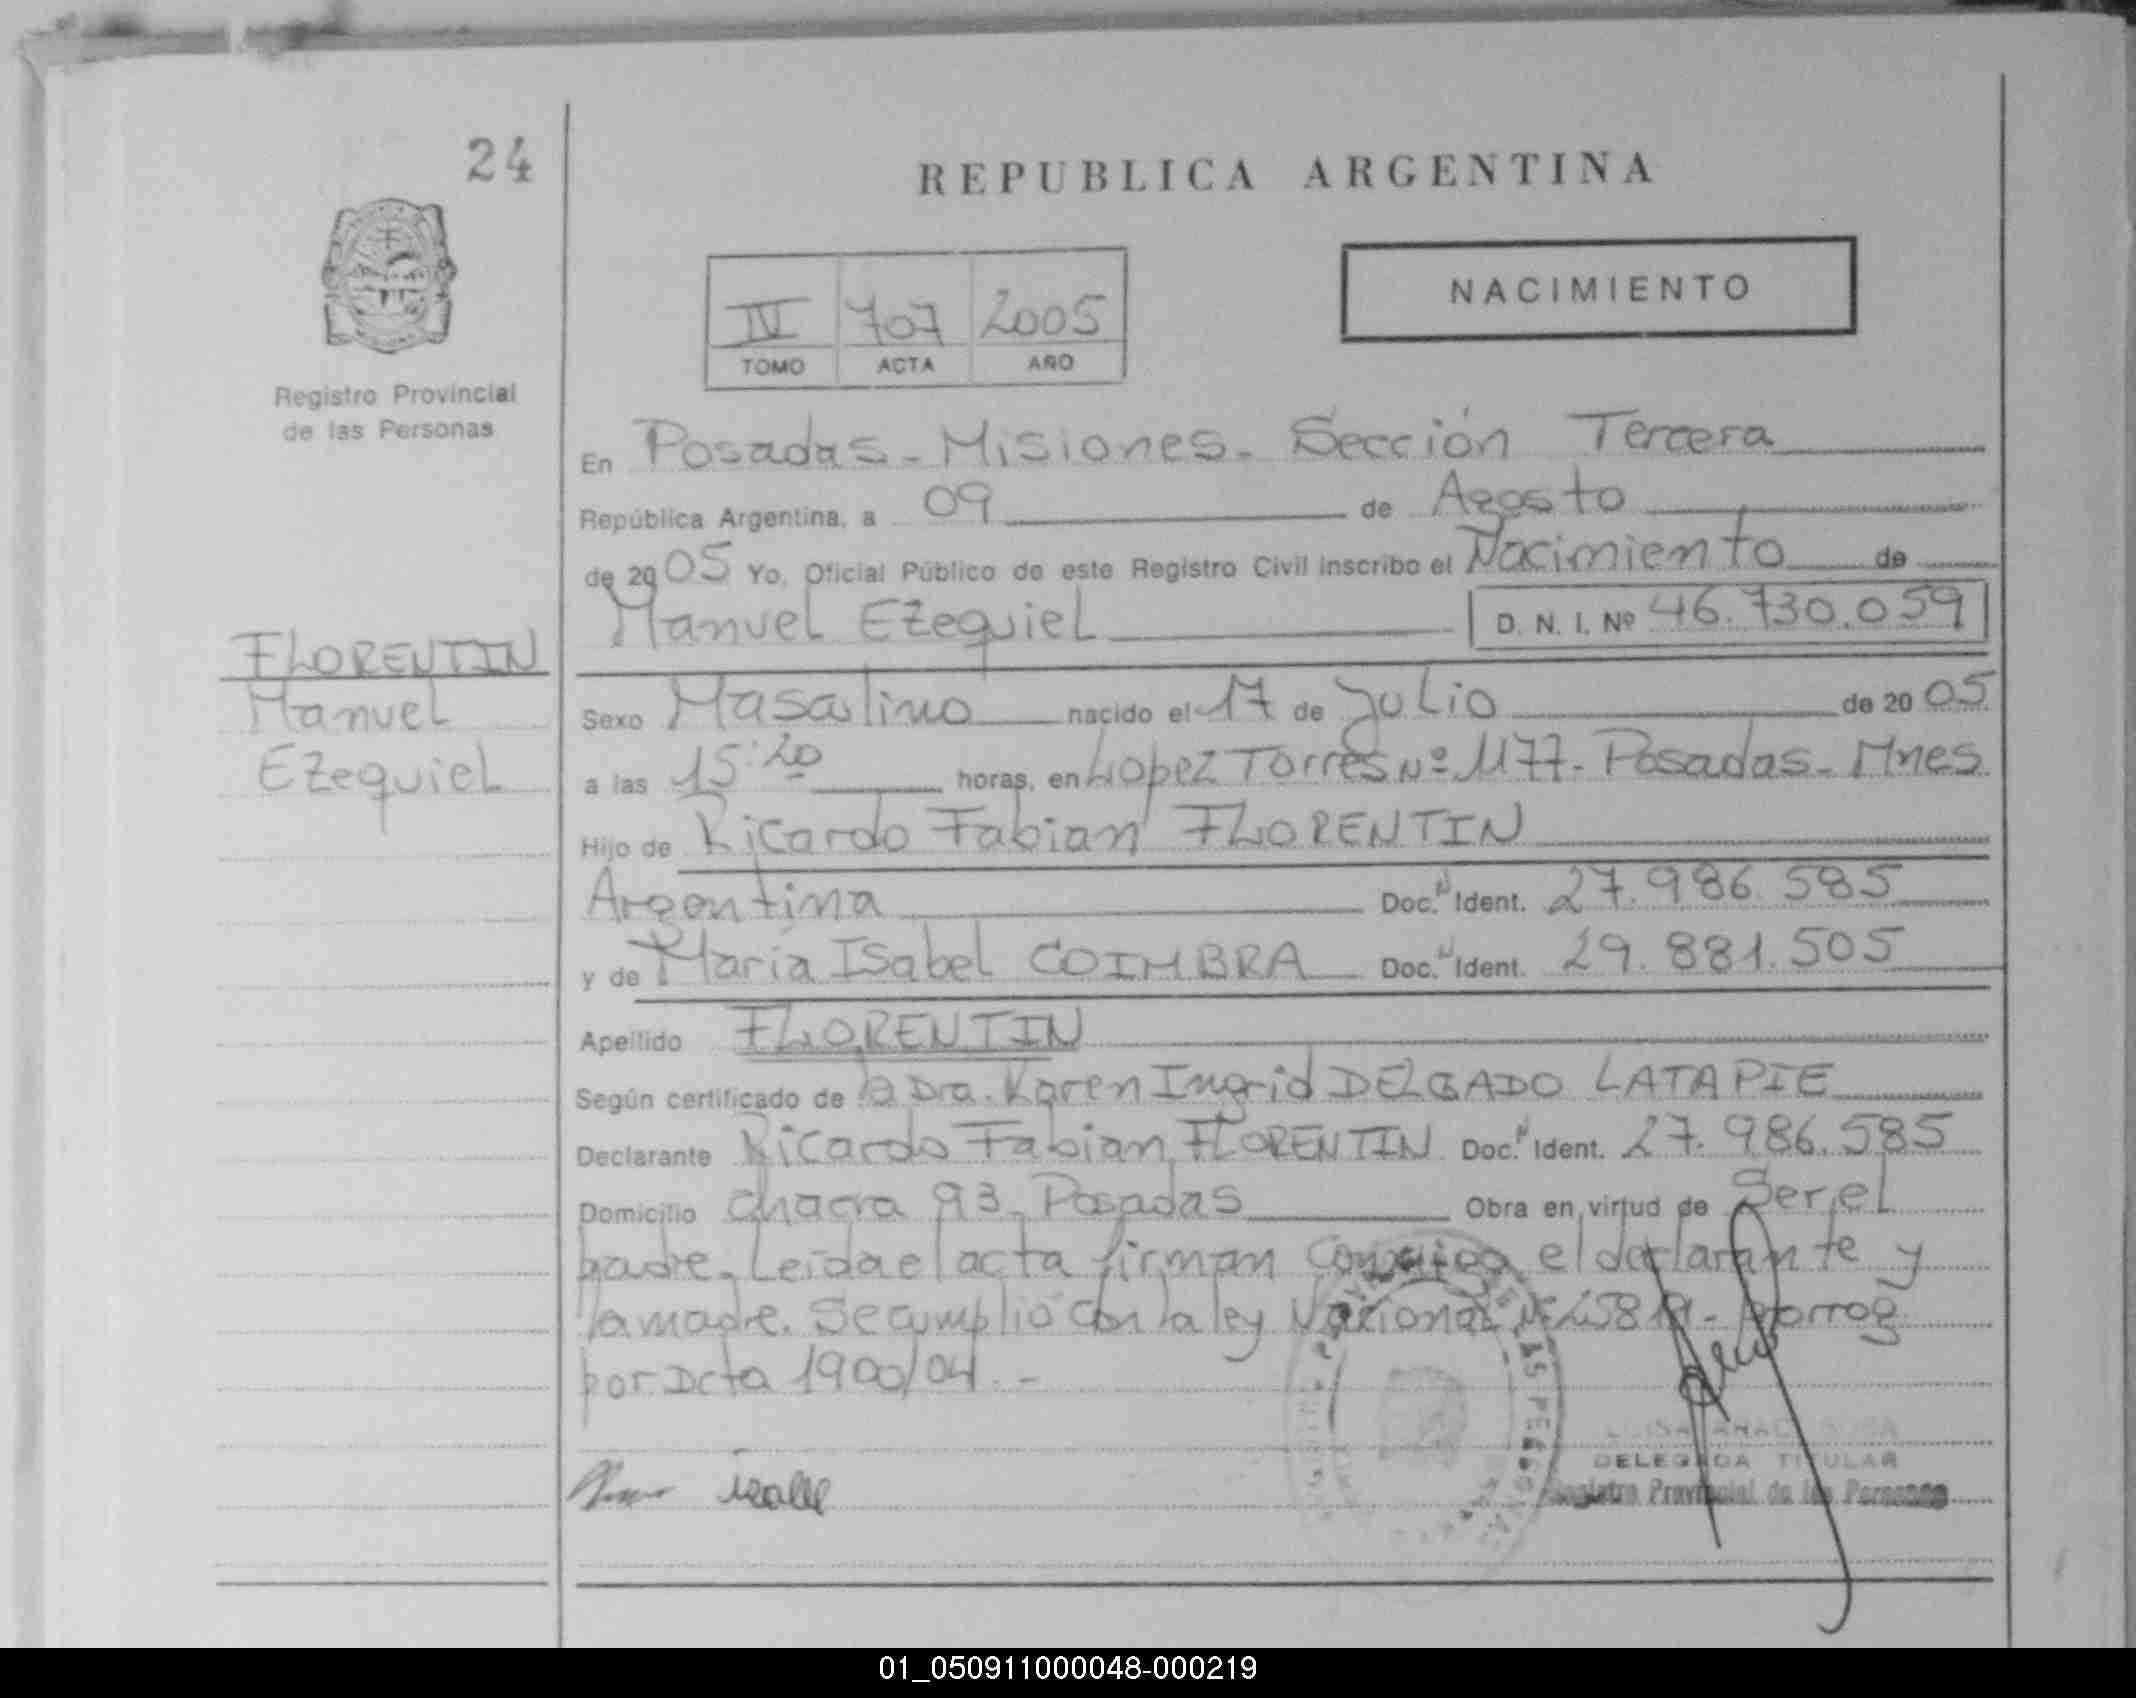 24
REPUBLICA ARGENTINA
NACIMIENTO
IV 707 2005
TOMO ACTA AÑO
Registro Provincial
de las Personas
En Posadas - Misiones - Sección Tercera
República Argentina, a 09 de Agosto
de 2005 Yo, Oficial Público de este Registro Civil inscribo el Nacimiento de
Manuel Ezequiel D. N. I. Nº 46.730.059
FLORENTIN
Manuel
Ezequiel
Sexo Masculino nacido el 17 de Julio de 2005
a las 15:20 horas, en Lopez Torres Nº 1177 - Posadas - Mnes
Hijo de Ricardo Fabian FLORENTIN
Argentina Doc. N Ident. 27.986.585
y de Maria Isabel COIMBRA Doc. N Ident. 29.881.505
Apellido FLORENTIN
Según certificado de la Dra. Karen Ingrid DELGADO LATAPIE
Declarante Ricardo Fabian FLORENTIN Doc. N Ident. 27.986.585
Domicilio chacra 93 - Posadas Obra en virtud de Ser el
padre. Leida el acta firman conmigo el declarante y
la madre. Se cumplio con la ley Nacional Nº 25819 - prorrog
por Dcto 1900/04. -
DELEGADA TITULAR
Registro Provincial de las Personas
01_050911000048-000219